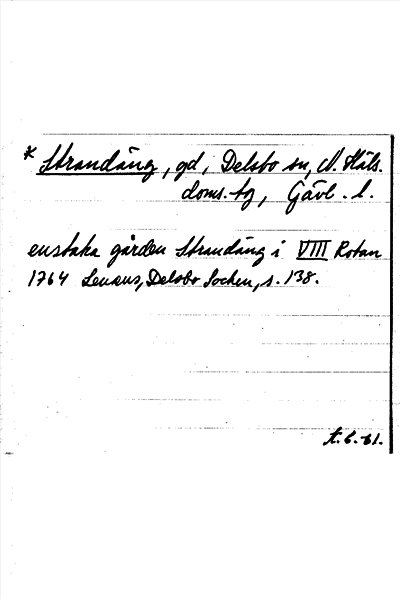 * Strandäng, gd, Delsbo sn, N. Häls.
doms. tg, Gävl. l.
enstaka gården Strandäng i VIII Rotan
1764 Lenæus, Delsbo Sochen, s. 138.